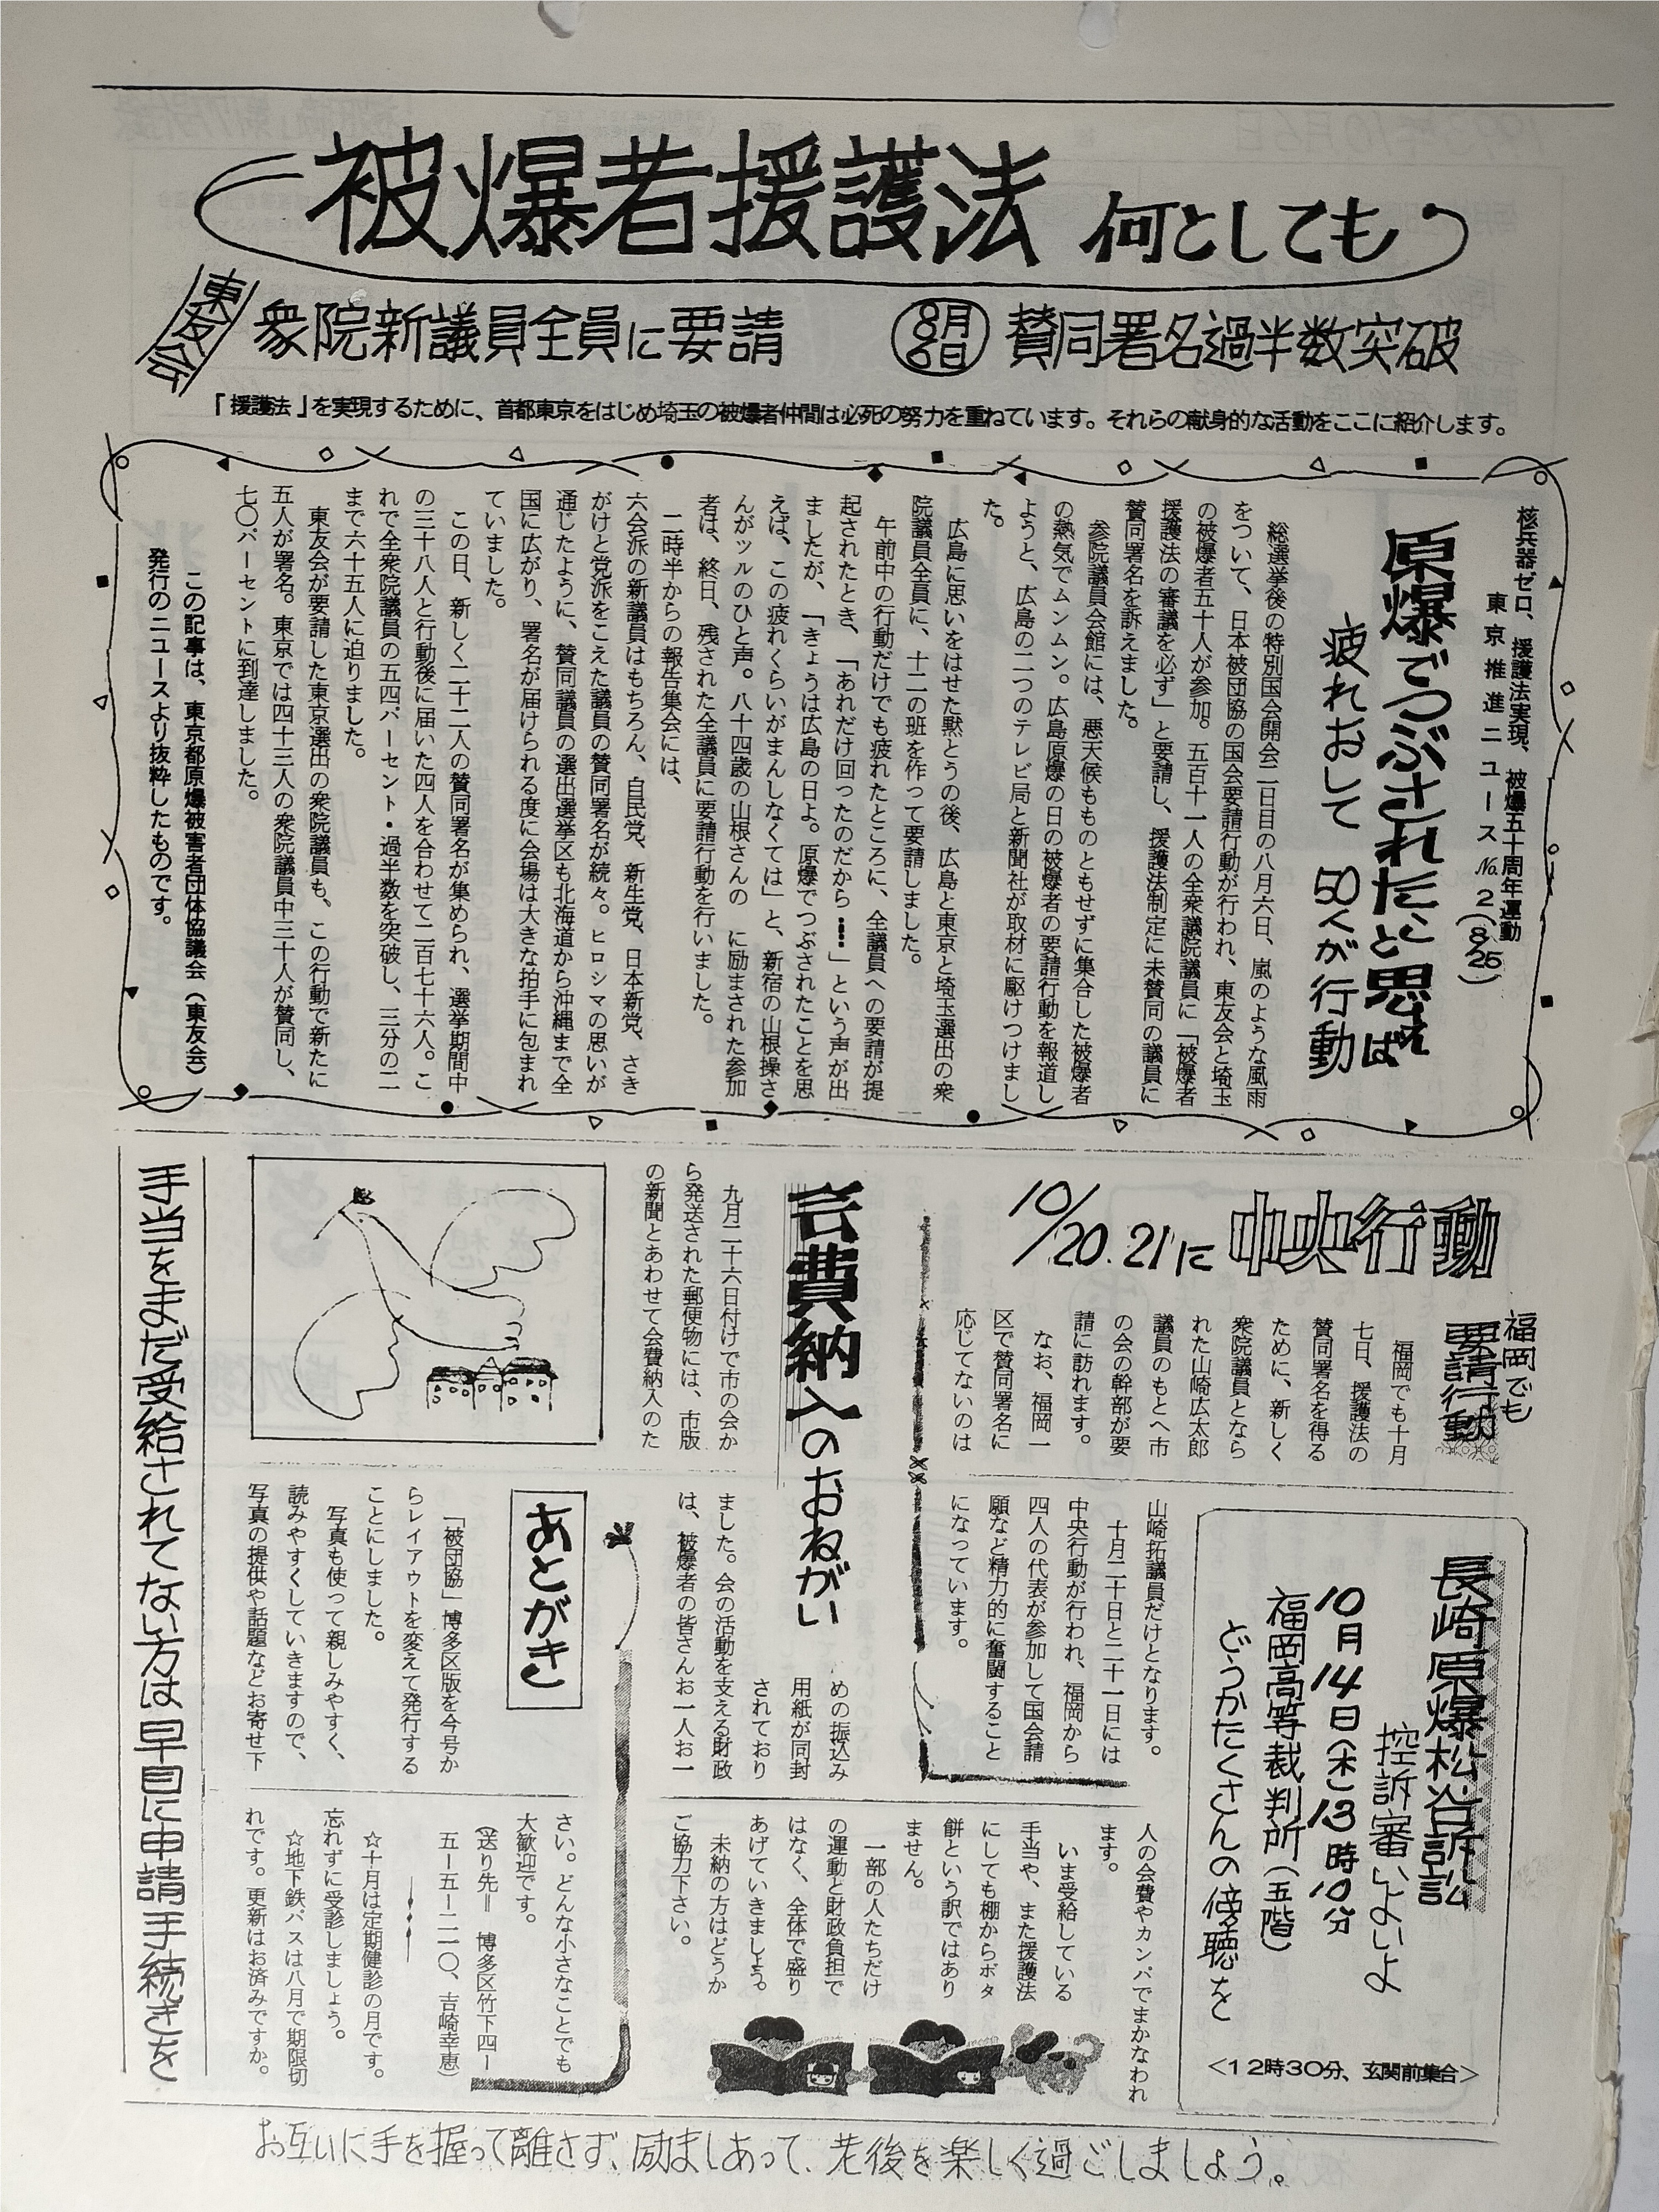 被爆者援護法 何としても
8月6日 賛同署名過半数突破
東友会
衆院新議員全員に要請
「援護法」を実現するために、首都東京をはじめ埼玉の被爆者仲間は必死の努力を重ねています。それらの献身的な活動をここに紹介します。
核兵器ゼロ、援護法実現、被爆五十周年運動
東京推進ニュース№2(8/25)
原爆でつぶされたと思えば
疲れおして 50人が行動
総選挙後の特別国会開会二日目の八月六日、嵐のような風雨
をついて、日本被団協の国会要請行動が行われ、東友会と埼玉
の被爆者五十人が参加。五百十一人の全衆議院議員に「被爆者
援護法の審議を必ず」と要請し、援護法制定に未賛同の議員に
賛同署名を訴えました。
参院議員会館には、悪天候もものともせずに集合した被爆者
の熱気でムンムン。広島原爆の日の被爆者の要請行動を報道し
ようと、広島の二つのテレビ局と新聞社が取材に駆けつけまし
た。
広島に思いをはせた黙とうの後、広島と東京と埼玉選出の衆
院議員全員に、十二の班を作って要請しました。
午前中の行動だけでも疲れたところに、全議員への要請が提
起されたとき、「あれだけ回ったのだから……」という声が出
ましたが、「きょうは広島の日よ。原爆でつぶされたことを思
えば、この疲れくらいがまんしなくては」と、新宿の山根操さ
んがツルのひと声。八十四歳の山根さんの に励まされた参加
者は、終日、残された全議員に要請行動を行いました。
二時半からの報告集会には、
六会派の新議員はもちろん、自民党、新生党、日本新党、さき
がけと党派をこえた議員の賛同署名が続々。ヒロシマの思いが
通じたように、賛同議員の選出選挙区も北海道から沖縄まで全
国に広がり、署名が届けられる度に会場は大きな拍手に包まれ
ていました。
この日、新しく二十二人の賛同署名が集められ、選挙期間中
の三十八人と行動後に届いた四人を合わせて二百七十六人。こ
れで全衆院議員の五四パーセント・過半数を突破し、三分の二
まで六十五人に迫りました。
東友会が要請した東京選出の衆院議員も、この行動で新たに
五人が署名。東京では四十三人の衆院議員中三十人が賛同し、
七〇パーセントに到達しました。
この記事は、東京都原爆被害者団体協議会(東友会)
発行のニュースより抜粋したものです。
10/20.21に中央行動
福岡でも
要請行動
福岡でも十月
七日、援護法の
賛同署名を得る
ために、新しく
衆院議員となら
れた山崎広太郎
議員のもとへ市
の会の幹部が要
請に訪れます。
なお、福岡一
区で賛同署名に
応じてないのは
山崎拓議員だけとなります。
十月二十日と二十一日には
中央行動が行われ、福岡から
四人の代表が参加して国会請
願など精力的に奮闘すること
になっています。
長崎原爆松谷訴訟
控訴審いよいよ
10月14日(木)13時10分
福岡高等裁判所(五階)
どうかたくさんの傍聴を
<12時30分、玄関前集合>
会費納入のおねがい
九月二十六日付けで市の会か
ら発送された郵便物には、市版
の新聞とあわせて会費納入のた
めの振込み
用紙が同封
されており
ました。会の活動を支える財政
は、被爆者の皆さんお一人お一
人の会費やカンパでまかなわれ
ます。
いま受給している
手当や、また援護法
にしても棚からボタ
餅という訳ではあり
ません。
一部の人たちだけ
の運動と財政負担で
はなく、全体で盛り
あげていきましょう。
未納の方はどうか
ご協力下さい。
あとがき
「被団協」博多区版を今号か
らレイアウトを変えて発行する
ことにしました。
写真も使って親しみやすく、
読みやすくしていきますので、
写真の提供や話題などお寄せ下
さい。どんな小さなことでも
大歓迎です。
(送り先= 博多区竹下四ー
五ー五ー二一〇、吉崎幸恵)
☆十月は定期健診の月です。
忘れずに受診しましょう。
☆地下鉄パスは八月で期限切
れです。更新はお済みですか。
手当をまだ受給されてない方は早目に申請手続きを
お互いに手を握って離さず、励ましあって、老後を楽しく過ごしましょう。